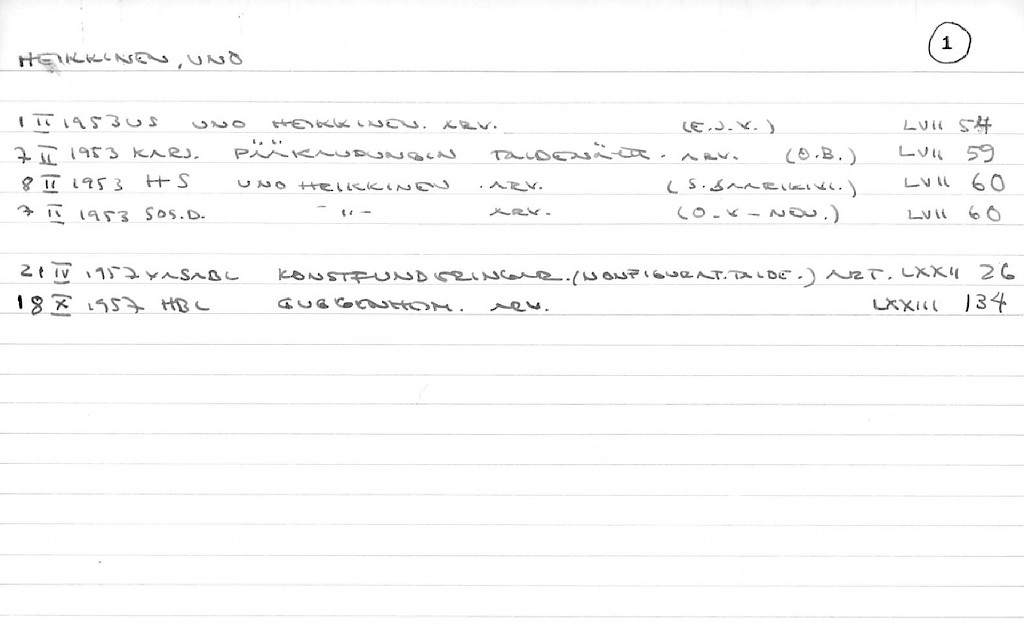 1
HEIKKINEN, UNO
1 II 1953 US UNO HEIKKINEN. ARV. (E.J.V.) LVII 54
7 II 1953 KARJ. PÄÄKAUPUNGIN TAIDENÄYTT. ARV. (O.B.) LVII 59
8 II 1953 HS UNO HEIKKINEN. ARV. (S. SAARIKIVI.) LVII 60
7 II 1953 SOS.D. -"- ARV. (O-V-NEN.) LVII 60
21 IV 1957 VASABL KONSTFUNDERINGAR. (NONFIGURAT. TAIDE.) ART. LXXII 26
18 X 1957 HBL GUGGENHEIM. ARV. LXXIII 134